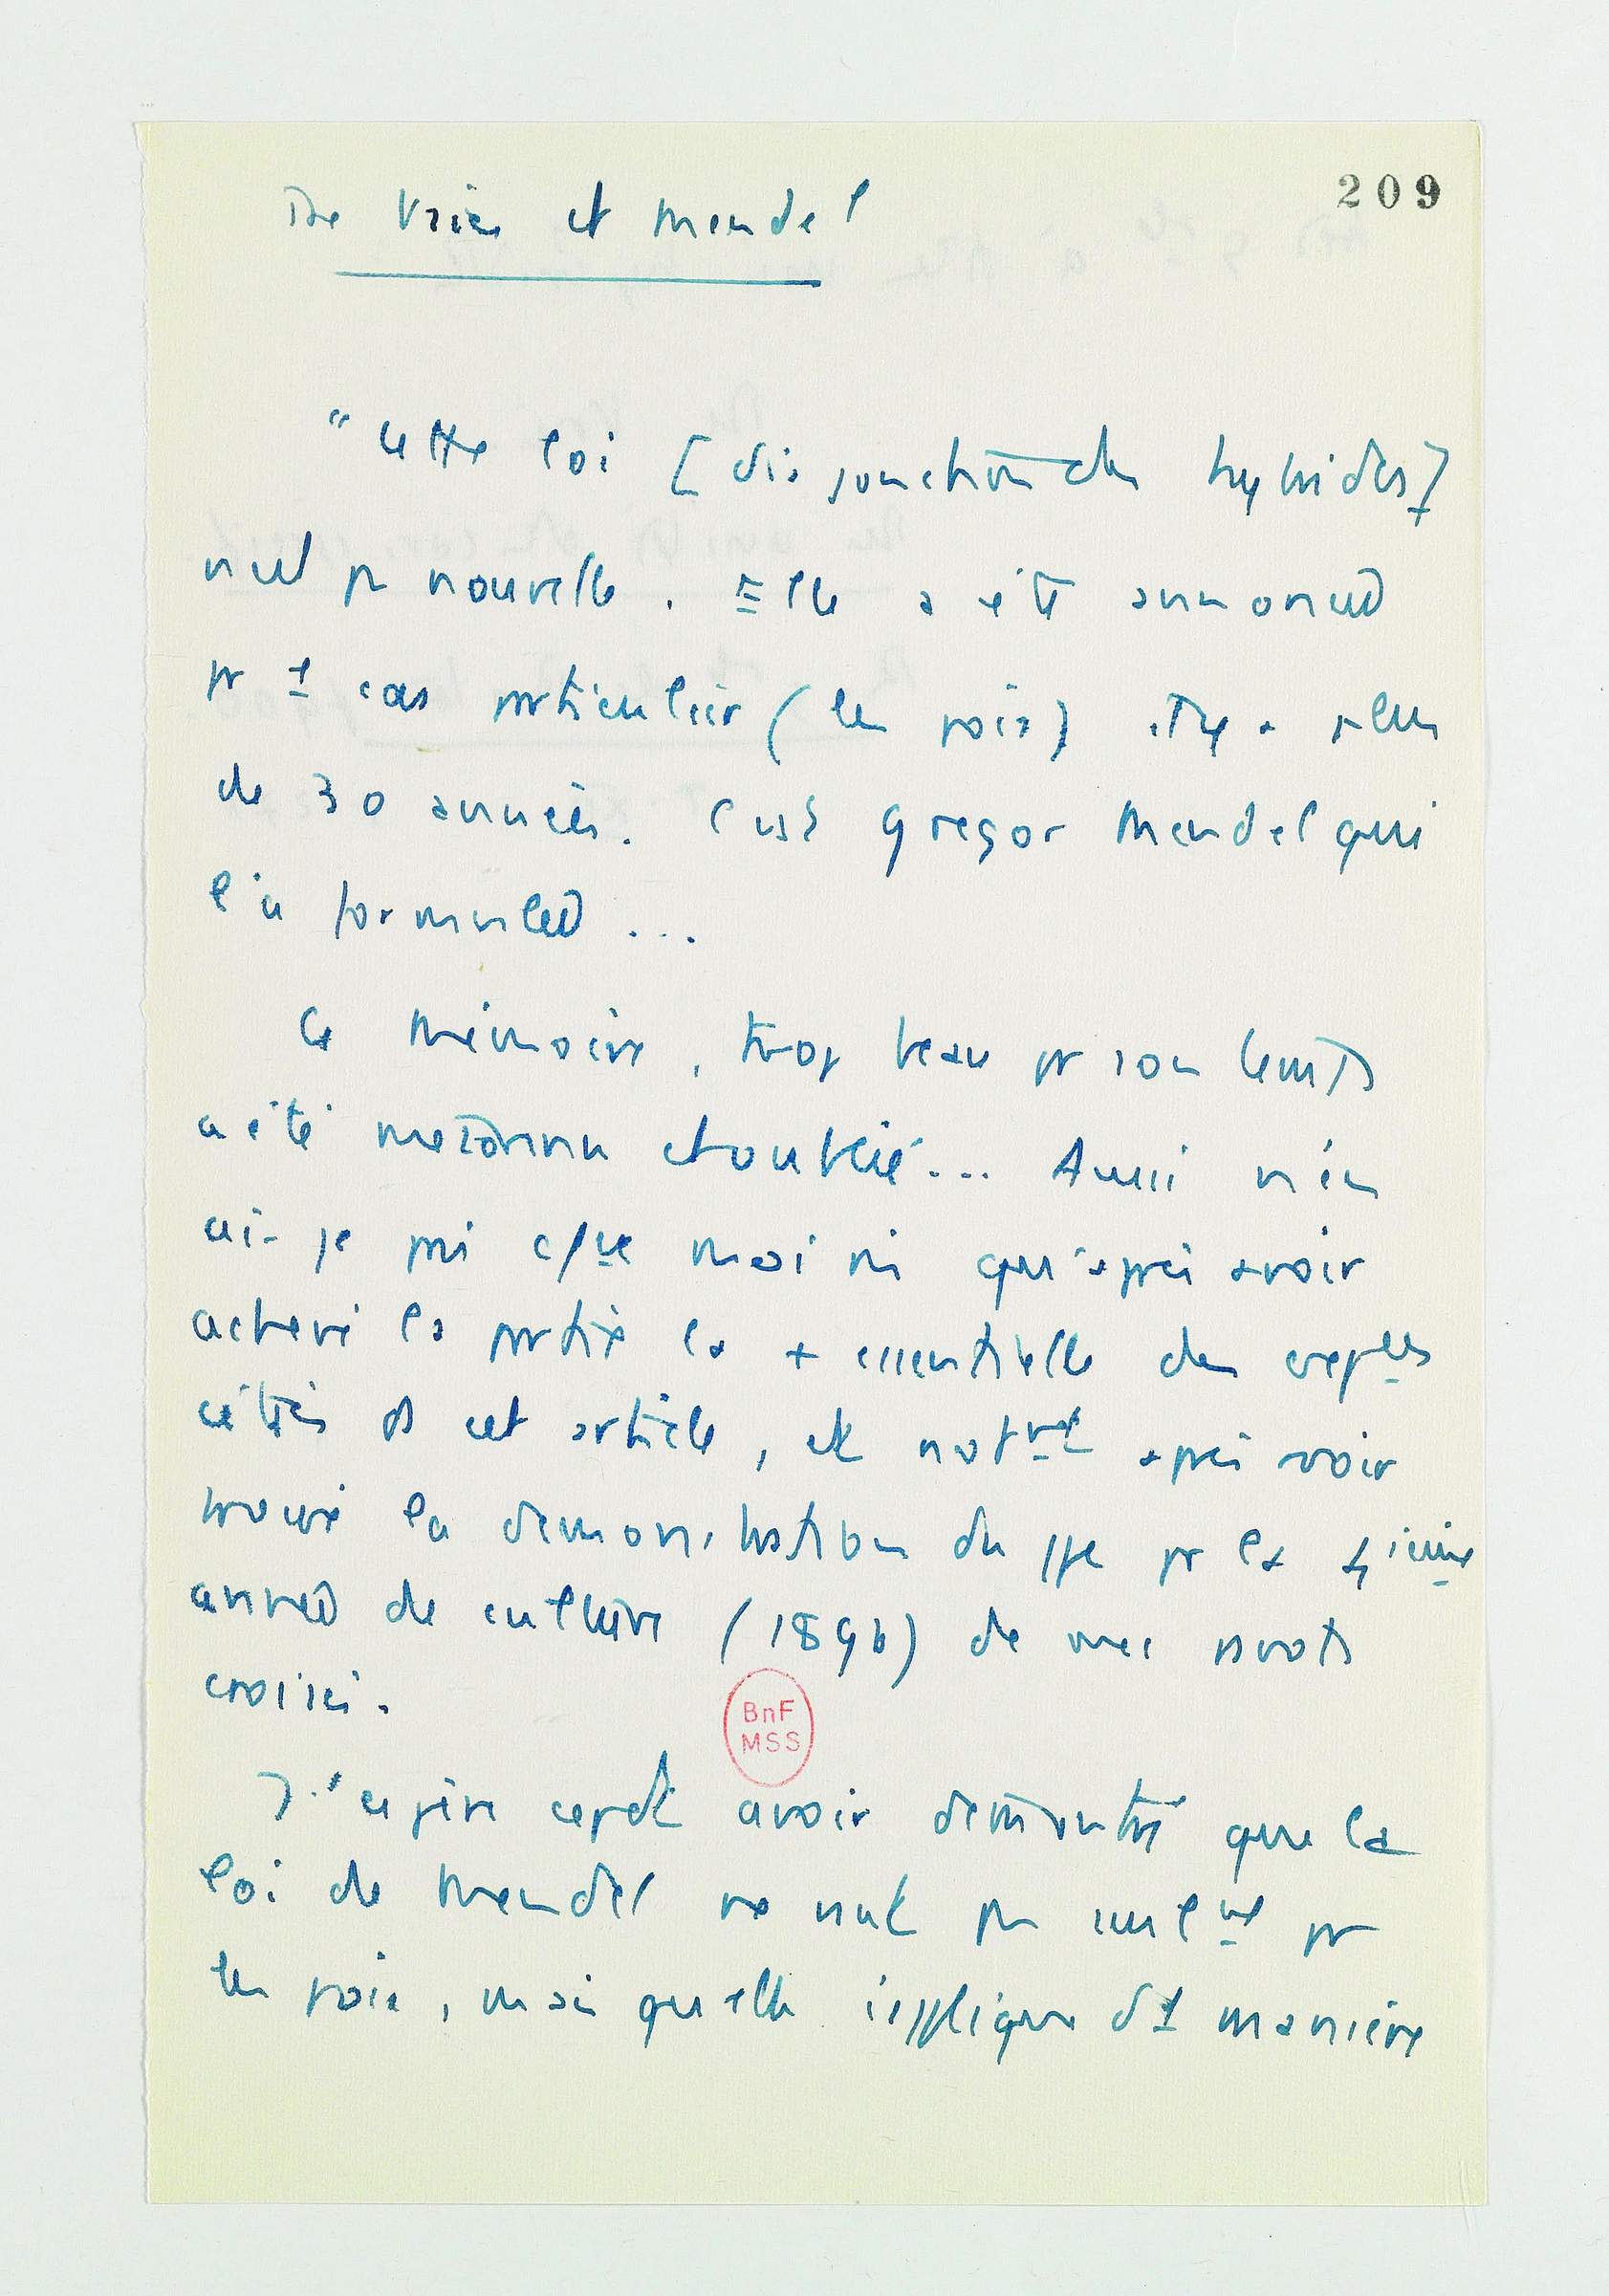 209
De Vries et Mendel
" Cette loi [disjonction des hybrides]
n'est pas nouvelle. Elle a été annoncée
pr 1 cas particulier (les pois) il y a plus
de 30 années. C'est Gregor Mendel qui
l'a formulée ...
Ce mémoire, trop beau pr son temps
a été méconnu et oublié ... Aussi n'en
ai-je pris c/ce moi mi qu'après avoir
achevé la partie la + essentielle des expces
citées ds cet article, et notmt après avoir
trouvé la démonstration du ppe pr la 4ième
année de culture (1896) de mes pavots
croisés.
J'espère cepdt avoir démontré que la
loi de Mendel ne vaut pas seulmt pr
les pois, mais qu'elle s'applique d'1 manière
BnF
MSS